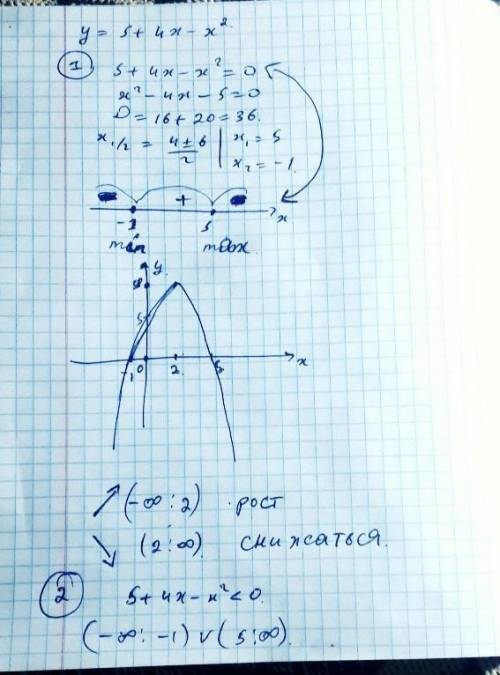 y = 5 + 4x - x²
1
5 + 4x - x² = 0
x² - 4x - 5 = 0
D = 16 + 20 = 36.
x₁/₂ = (4 ± 6)/2 | x₁ = 5
x₂ = -1
- + -
-1 5 x
min max
y
9
5
-1 0 2 5 x
(-∞; 2) рост
(2; ∞) снижсаться.
2
5 + 4x - x² < 0.
(-∞; -1) ∨ (5; ∞).